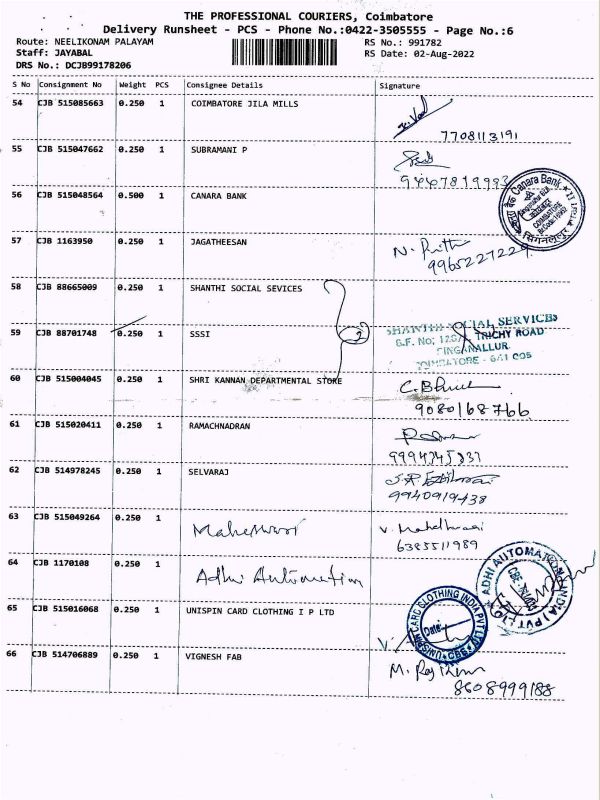 THE PROFESSIONAL COURIERS, Coimbatore
Delivery Runsheet - PCS - Phone No.:0422-3505555 - Page No.:6
Route: NEELIKONAM PALAYAM
RS No.: 991782
Staff: JAYABAL
RS Date: 02-Aug-2022
DRS No.: DCJB99178206
S No Consignment No Weight PCS Consignee Details Signature
54 CJB 515085663 0.250 1 COIMBATORE JILA MILLS
7708113191
55 CJB 515047662 0.250 1 SUBRAMANI P
56 CJB 515048564 0.500 1 CANARA BANK
Canara Bank
COIMBATORE
57 CJB 1163950 0.250 1 JAGATHEESAN
9965227229
58 CJB 88665009 0.250 1 SHANTHI SOCIAL SEVICES
59 CJB 88701748 0.250 1 SSSI
2
SHANTHI SOCIAL SERVICES
TRICHY ROAD
SINGANALLUR
COIMBATORE - 641 005
60 CJB 515004045 0.250 1 SHRI KANNAN DEPARTMENTAL STORE
9080168766
61 CJB 515020411 0.250 1 RAMACHNADRAN
62 CJB 514978245 0.250 1 SELVARAJ
9940919438
63 CJB 515049264 0.250 1 Maheswari
6385511989
64 CJB 1170108 0.250 1 Adhi Automation
ADHI AUTOMATION INDIA PVT LTD
CBE
65 CJB 515016068 0.250 1 UNISPIN CARD CLOTHING I P LTD
UNISPIN CARD CLOTHING INDIA PVT LTD
Date:
CBE
66 CJB 514706889 0.250 1 VIGNESH FAB
8608999188